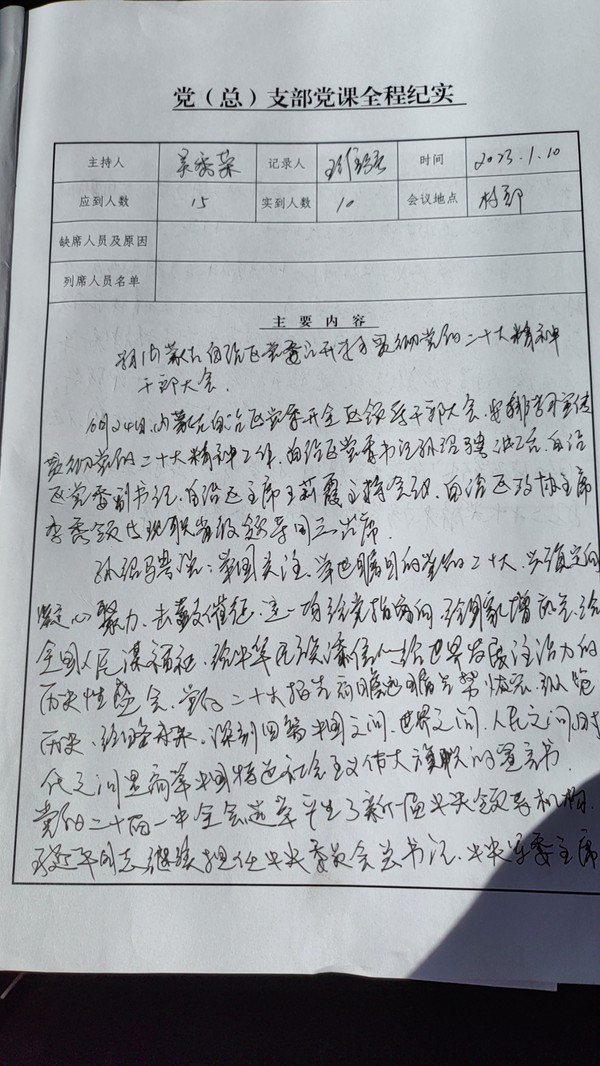 党（总）支部党课全程纪实
主持人 吴 荣 记录人 时间 2023.1.10
应到人数 15 实到人数 10 会议地点 村部
缺席人员及原因
列席人员名单
主要内容
内蒙古自治区党委召开学习贯彻党的二十大精神
干部大会.
10月24日,内蒙古自治区党委召开全区领导干部大会.安排学习宣传
贯彻党的二十大精神工作.自治区党委书记孙绍骋讲话.自治
区党委副书记.自治区主席王莉霞主持会议.自治区政协主席
李秀领与现职省级领导同志出席.
孙绍骋说:举国关注.举世瞩目的党的二十大.必将定向
聚力.去 催征.这一场给党指方向.给国家增 .给
全国人民谋福祉.给中华民族 .给世界 注活力的
历史性盛会.党的二十大报告高瞻远瞩 恢宏.纵览
历史.经略未来.深刻回答中国之问.世界之问.人民之问.时
代之问是高举中国特色社会主义伟大旗帜的宣言书.
党的二十届一中全会选举产生了新一届中央领导机构.
习近平同志继续担任中央委员会总书记.中央军委主席